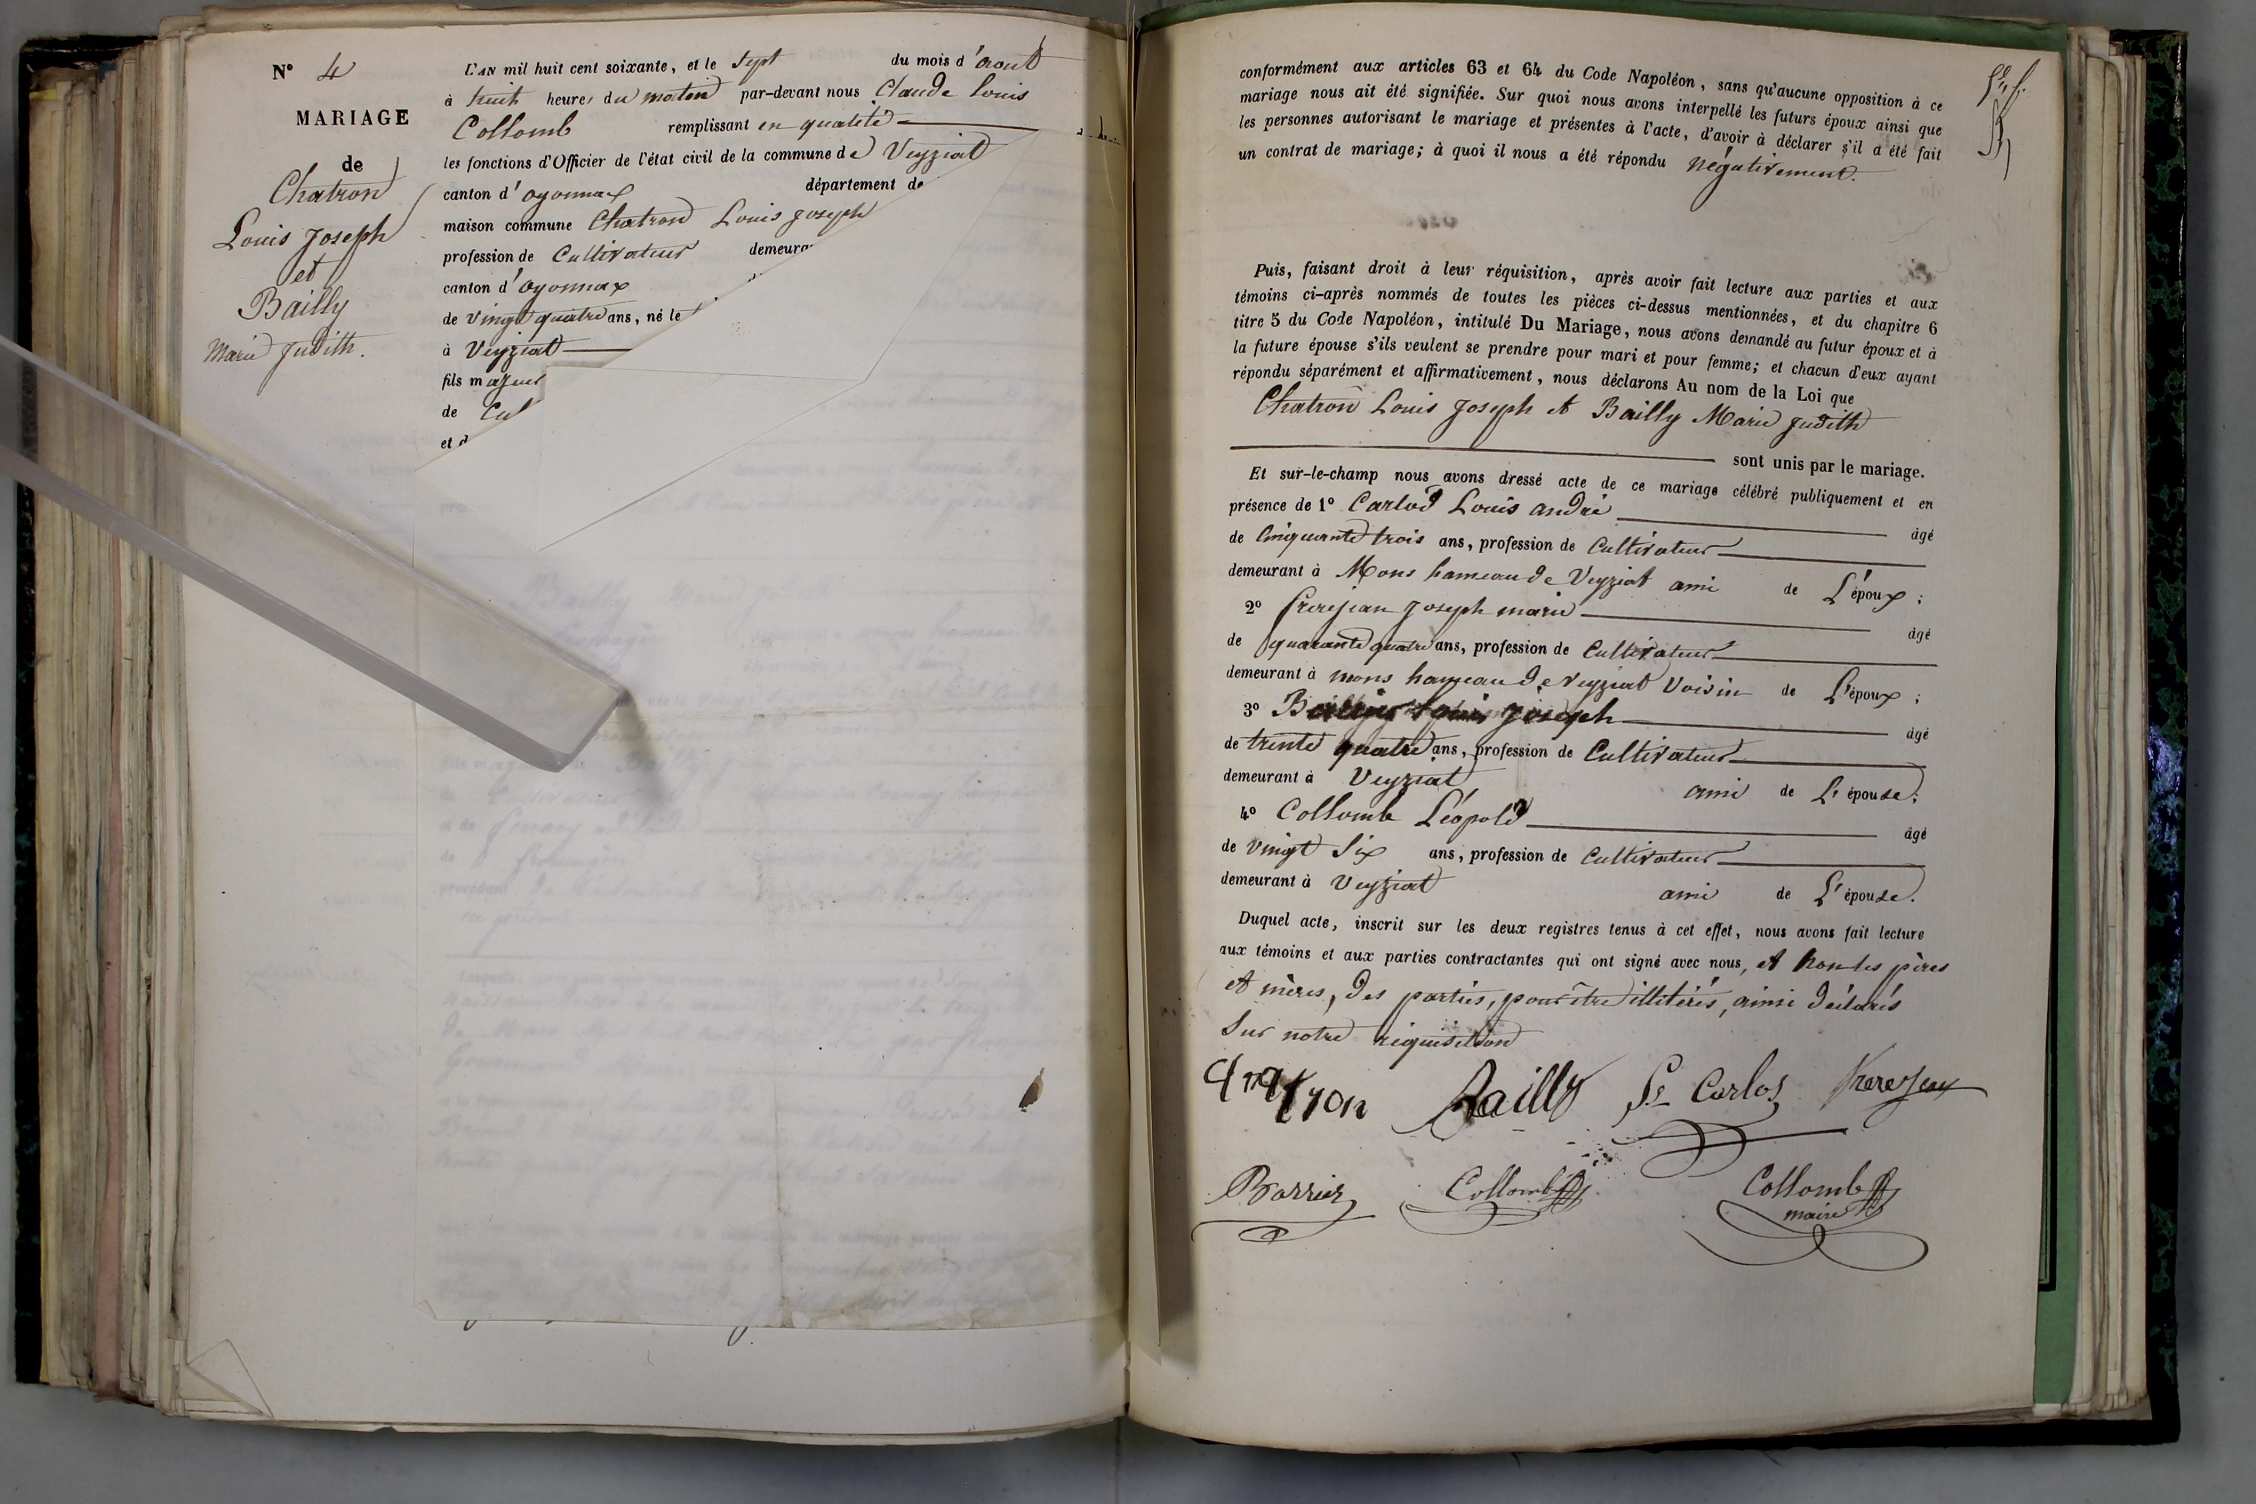 N° 4
MARIAGE
de
Chatron
Louis Joseph
et
Bailly
Marie Judith.
L'AN mil huit cent soixante, et le sept du mois d'aout
à huit heures du matin par-devant nous Claude Louis
Collomb remplissant en qualité
les fonctions d'Officier de l'état civil de la commune de Veyziat
canton d'oyonnax département de
maison commune Chatron Louis Joseph
profession de Cultivateur
canton d'Oyonnax
de vingt quatre ans, né le
à Veyziat
fils majeur
de
et
conformément aux articles 63 et 64 du Code Napoléon, sans qu'aucune opposition à ce
mariage nous ait été signifiée. Sur quoi nous avons interpellé les futurs époux ainsi que
les personnes autorisant le mariage et présentes à l'acte, d'avoir à déclarer s'il a été fait
un contrat de mariage; à quoi il nous a été répondu négativement.
Puis, faisant droit à leur réquisition, après avoir fait lecture aux parties et aux
témoins ci-après nommés de toutes les pièces ci-dessus mentionnées, et du chapitre 6
titre 5 du Code Napoléon, intitulé Du Mariage, nous avons demandé au futur époux et à
la future épouse s'ils veulent se prendre pour mari et pour femme; et chacun d'eux ayant
répondu séparément et affirmativement, nous déclarons Au nom de la Loi que
Chatron Louis Joseph et Bailly Marie Judith
sont unis par le mariage.
Et sur-le-champ nous avons dressé acte de ce mariage célébré publiquement et en
présence de 1° Carlod Louis andré âgé
de Cinquante trois ans, profession de Cultivateur
demeurant à Mons hameau de Veyziat ami de L'époux;
2° Frerejean Joseph marie âgé
de quarante quatre ans, profession de Cultivateur
demeurant à mons hameau de Veyziat Voisin de L'époux;
3° Joseph âgé
de trente quatre ans, profession de Cultivateur
demeurant à Veyziat ami de L'épouse;
4° Collomb Léopold âgé
de vingt six ans, profession de Cultivateur
demeurant à Veyziat ami de L'épouse.
Duquel acte, inscrit sur les deux registres tenus à cet effet, nous avons fait lecture
aux témoins et aux parties contractantes qui ont signé avec nous, et non les pères
et mères, des parties, pour être illitérés, ainsi déclarés
Sur notre réquisition
Bailly Carlos FrereJean
Collomb Collomb
maire